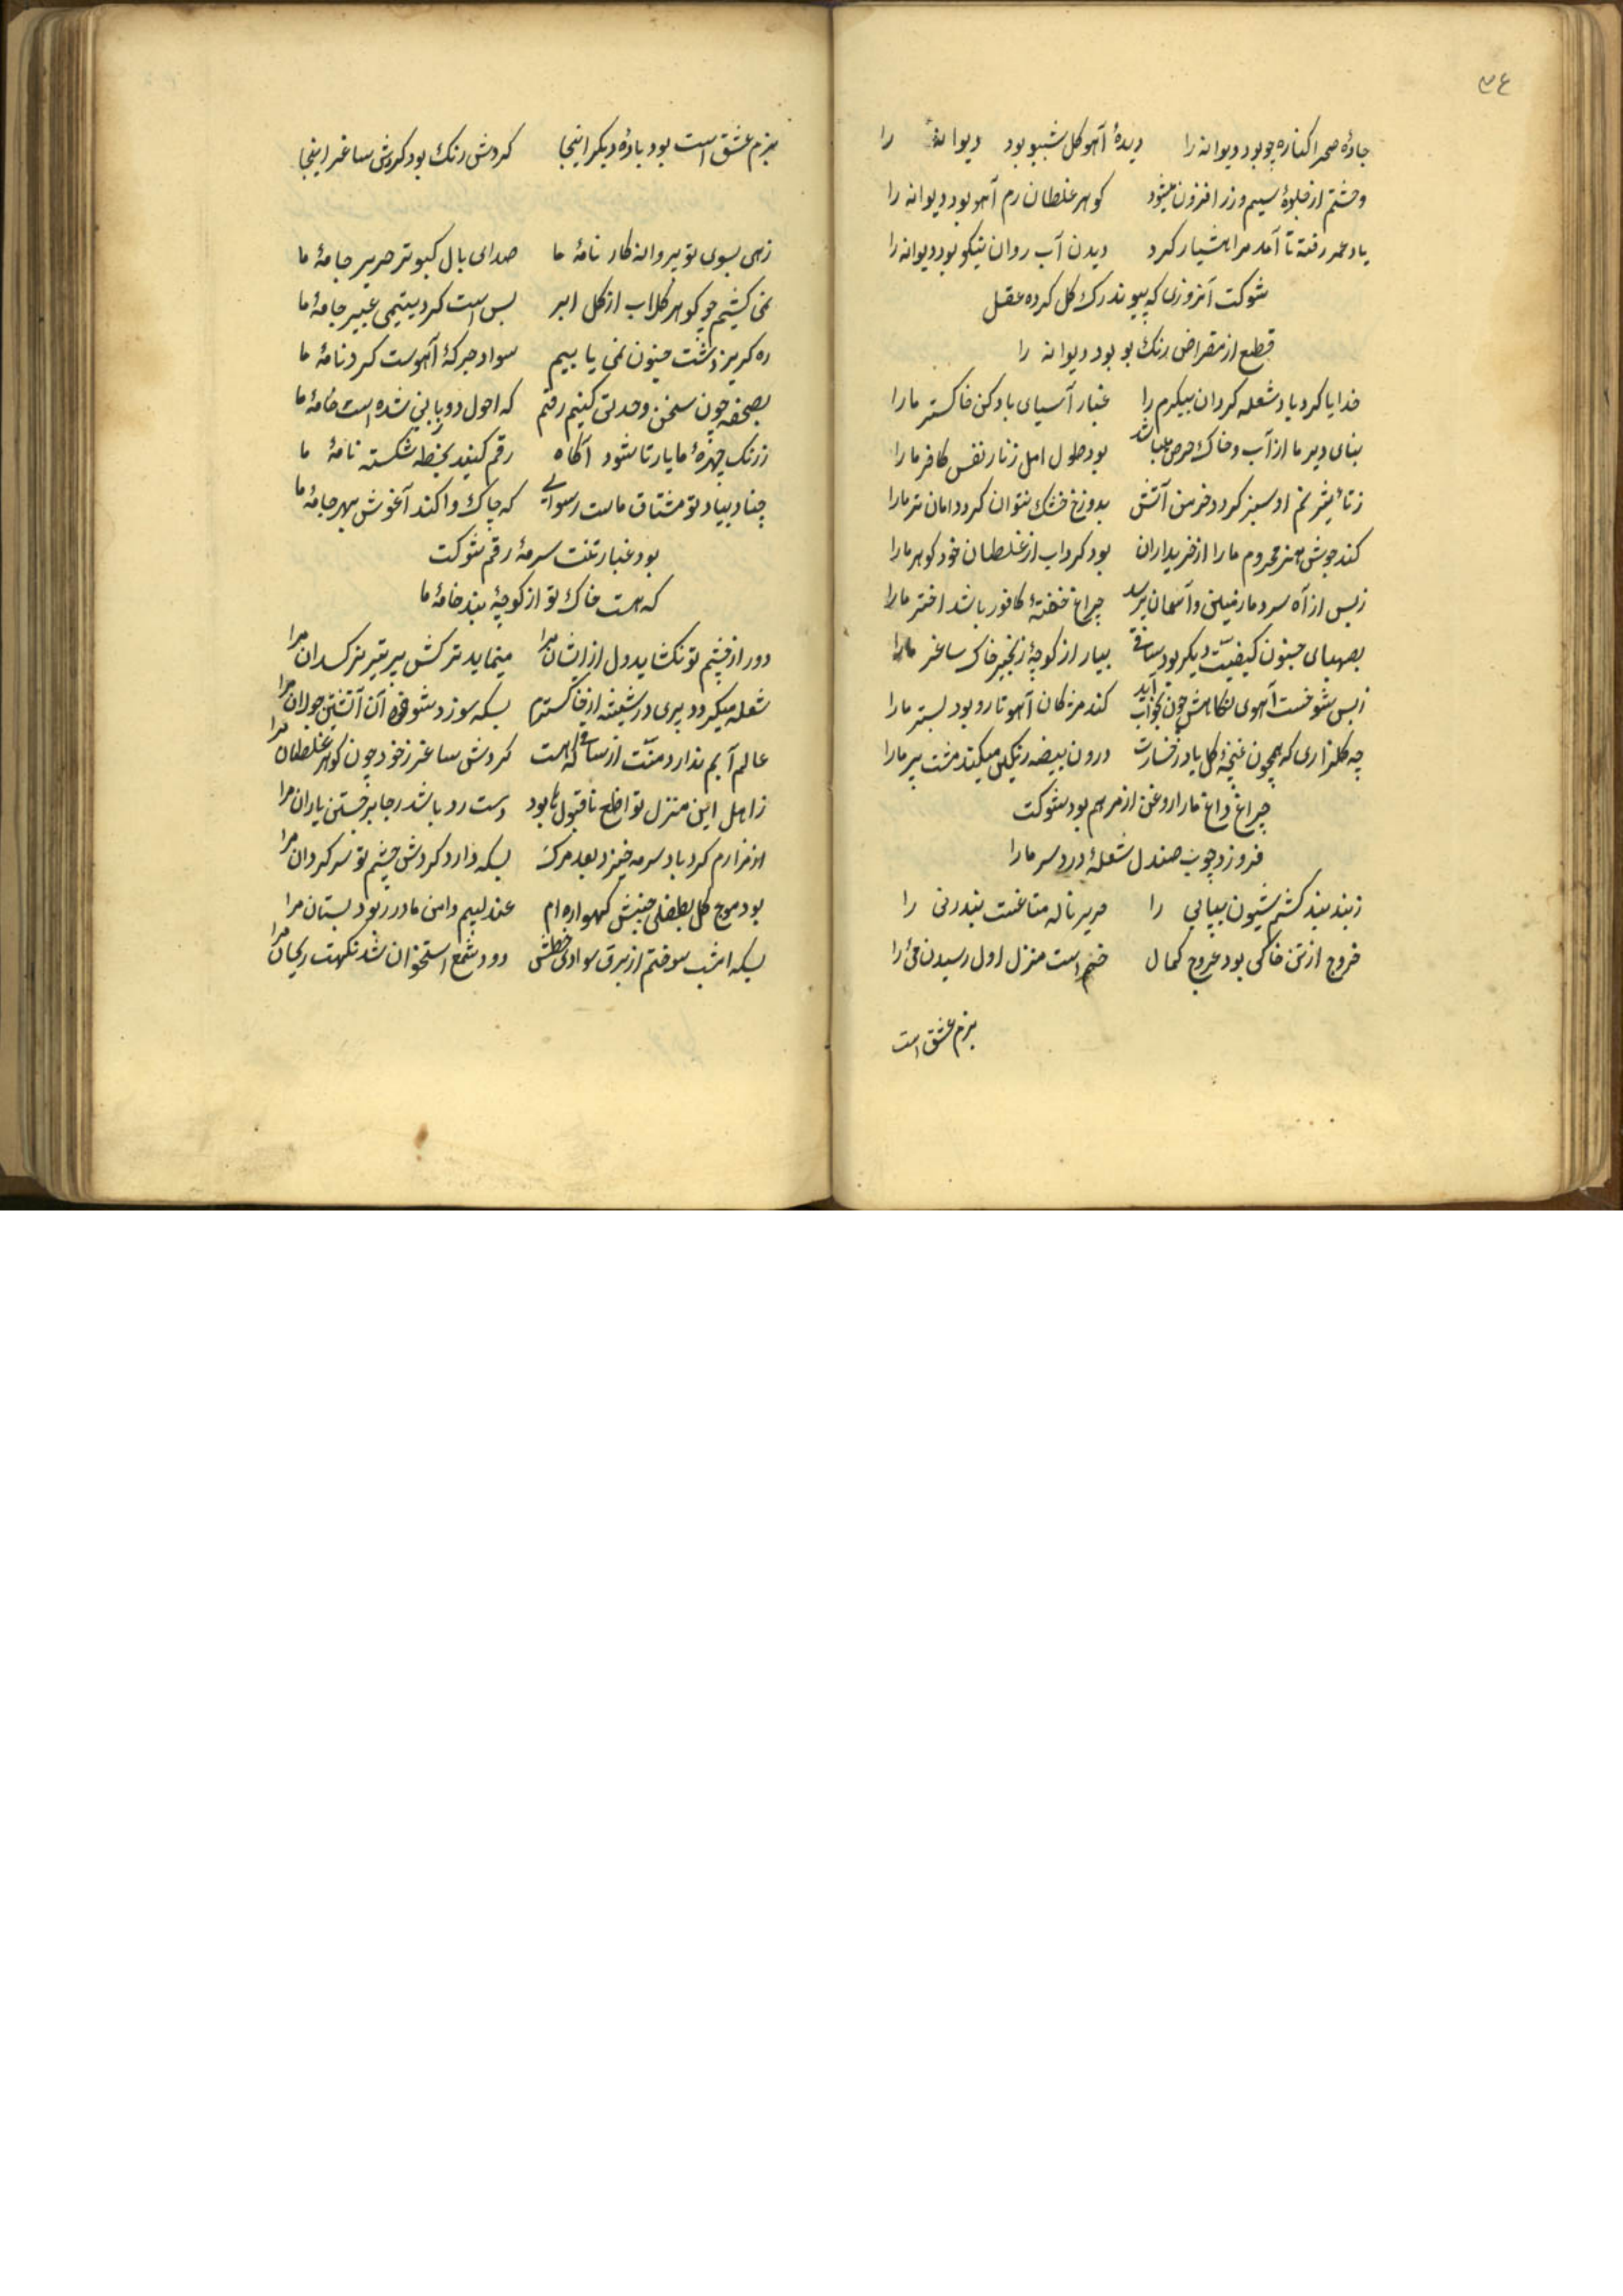 ٣٤
جادهٔ صحرا کناره جو بود دیوانه را دیدهٔ آهو کل شببو بود دیوانهٔ را
وحشتم از جلوهٔ سیم و زر افزون میشود کوهر غلطان رم آهو بود دیوانه را
یاد عمر رفته تا آمد مرا هشیار کرد دیدن آب روان نیکو بود دیوانه را
شوکت آنروزی که پیوند رک کل کرده عقل
قطع از مقراض رنک بو بود دیوانه را
خدایا کردباد شعله کردان پیکرم را غبار آسیای باد کن خاکستر ما را
بنای دیر ما از آب و خاک حرص باشد بود طول امل زنار نفس کافر ما را
ز تأثیر نم او سبز کردد خرمن آتش بدوزخ خشک نتوان کرد دامان تر ما را
کند جوش هنر محروم ما را از خریداران بود کرداب از غلطان خود کوهر ما را
ز بس از آه سرد ما زمین و آسمان پر شد چراغ خفتهٔ کافور باشد اختر ما را
بصهبای جنون کیفیت دیکر بود ساقی بیار از کوچهٔ زنجیر خاک ساغر ما را
ز بس شوخست آهوی نکاهش چون بخواب آید کند مژکان آهو تار و پود بستر ما را
چه کلزاری که همچون غنچهٔ کل یاد رخسارت درون بیضه رنکین میکند مشت پر ما را
چراغ داغ ما را روغن از مرهم بود شوکت
فروزد چوب صندل شعلهٔ درد سر ما را
ز بند بند کشتم شیون بیپایی را صریر ناله متاعنت بندر نی را
خروج از تن خاکی بود عروج کمال خم است منزل اول رسیدن می را
بزم عشق است
بزم عشق است بود بادهٔ دیکر اینجا کردش رنک بود کردش ساغر اینجا
زهی بسوی تو پروانه کار نامهٔ ما صدای بال کبوتر صریر خامهٔ ما
نمی کشیم چو کوهر کلاب از کل ابر بس است کرد یتیمی عبیر جامهٔ ما
ره کریز دشت جنون نمی یابیم سواد جرکهٔ آهوست کرد نامهٔ ما
بصفحه چون سخن وحدتی کنیم رقم که احول دو زبانی شده است خامهٔ ما
ز رنک چهرهٔ ما یار تا شود آکاه رقم کنید بخط شکسته نامهٔ ما
چنان بیاد تو مشتاق ماست رسوایی که چاک وا کند آغوش بهر جامهٔ ما
بود غبار تنت سرمهٔ رقم شوکت
که هست خاک تو از کوچهٔ بند خامهٔ ما
دور از چشم تو نکشاید دل از ایشان مرا مینماید ترکش پر تیر نرکسدان مرا
شعله میکردد پری در شیشه از خاکسترم بسکه سوزد شوخی آن آتشین جولان مرا
عالم آبم ندارد منت از ساقی که هست کردش ساغر ز خود چون کوهر غلطان مرا
ز اهل این منزل تواضع ناقبول ما بود دست رد باشد ز جا برخستن یاران مرا
از مزارم کردباد سرمه خیزد بعد مرک بسکه دارد کردش چشم تو سرکردان مرا
بود موج کل بطفلی جنبش کهواره ام عندلیبم دامن مادر بود بستان مرا
بسکه امشب سوختم از برق سوادی خطش دود شمع استخوان شد نکهت ریحان مرا